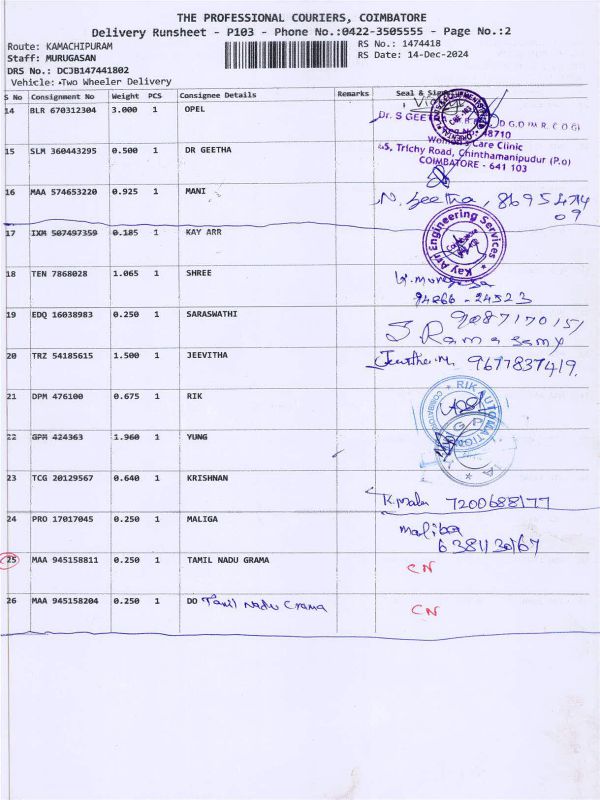 THE PROFESSIONAL COURIERS, COIMBATORE
Delivery Runsheet - P103 - Phone No.:0422-3505555 - Page No.:2
Route: KAMACHIPURAM RS No.: 1474418
Staff: MURUGASAN RS Date: 14-Dec-2024
DRS No.: DCJB147441802
Vehicle: Two Wheeler Delivery
S No Consignment No Weight PCS Consignee Details Remarks Seal & Sign
14 BLR 670312304 3.000 1 OPEL
Dr. S GEET D.G.O
48710
Women's Care Clinic
45, Trichy Road, Chinthamanipudur (P.o)
COIMBATORE - 641 103
15 SLM 360443295 0.500 1 DR GEETHA
16 MAA 574653220 0.925 1 MANI
N. Seetha,
Kay Arr Engineering Services
17 IXM 507497359 0.185 1 KAY ARR
18 TEN 7868028 1.065 1 SHREE
94866-24523
19 EDQ 16038983 0.250 1 SARASWATHI
9087170151
S Ramasamy
20 TRZ 54185615 1.500 1 JEEVITHA
Jeevitha.M. 9677837419.
21 DPM 476100 0.675 1 RIK
RIK AUTOMATION
COIMBATORE
22 GPM 424363 1.960 1 YUNG
23 TCG 20129567 0.640 1 KRISHNAN
7200688177
24 PRO 17017045 0.250 1 MALIGA
maliga
6381130167
25 MAA 945158811 0.250 1 TAMIL NADU GRAMA CN
26 MAA 945158204 0.250 1 DO Tamil Nadu Grama CN